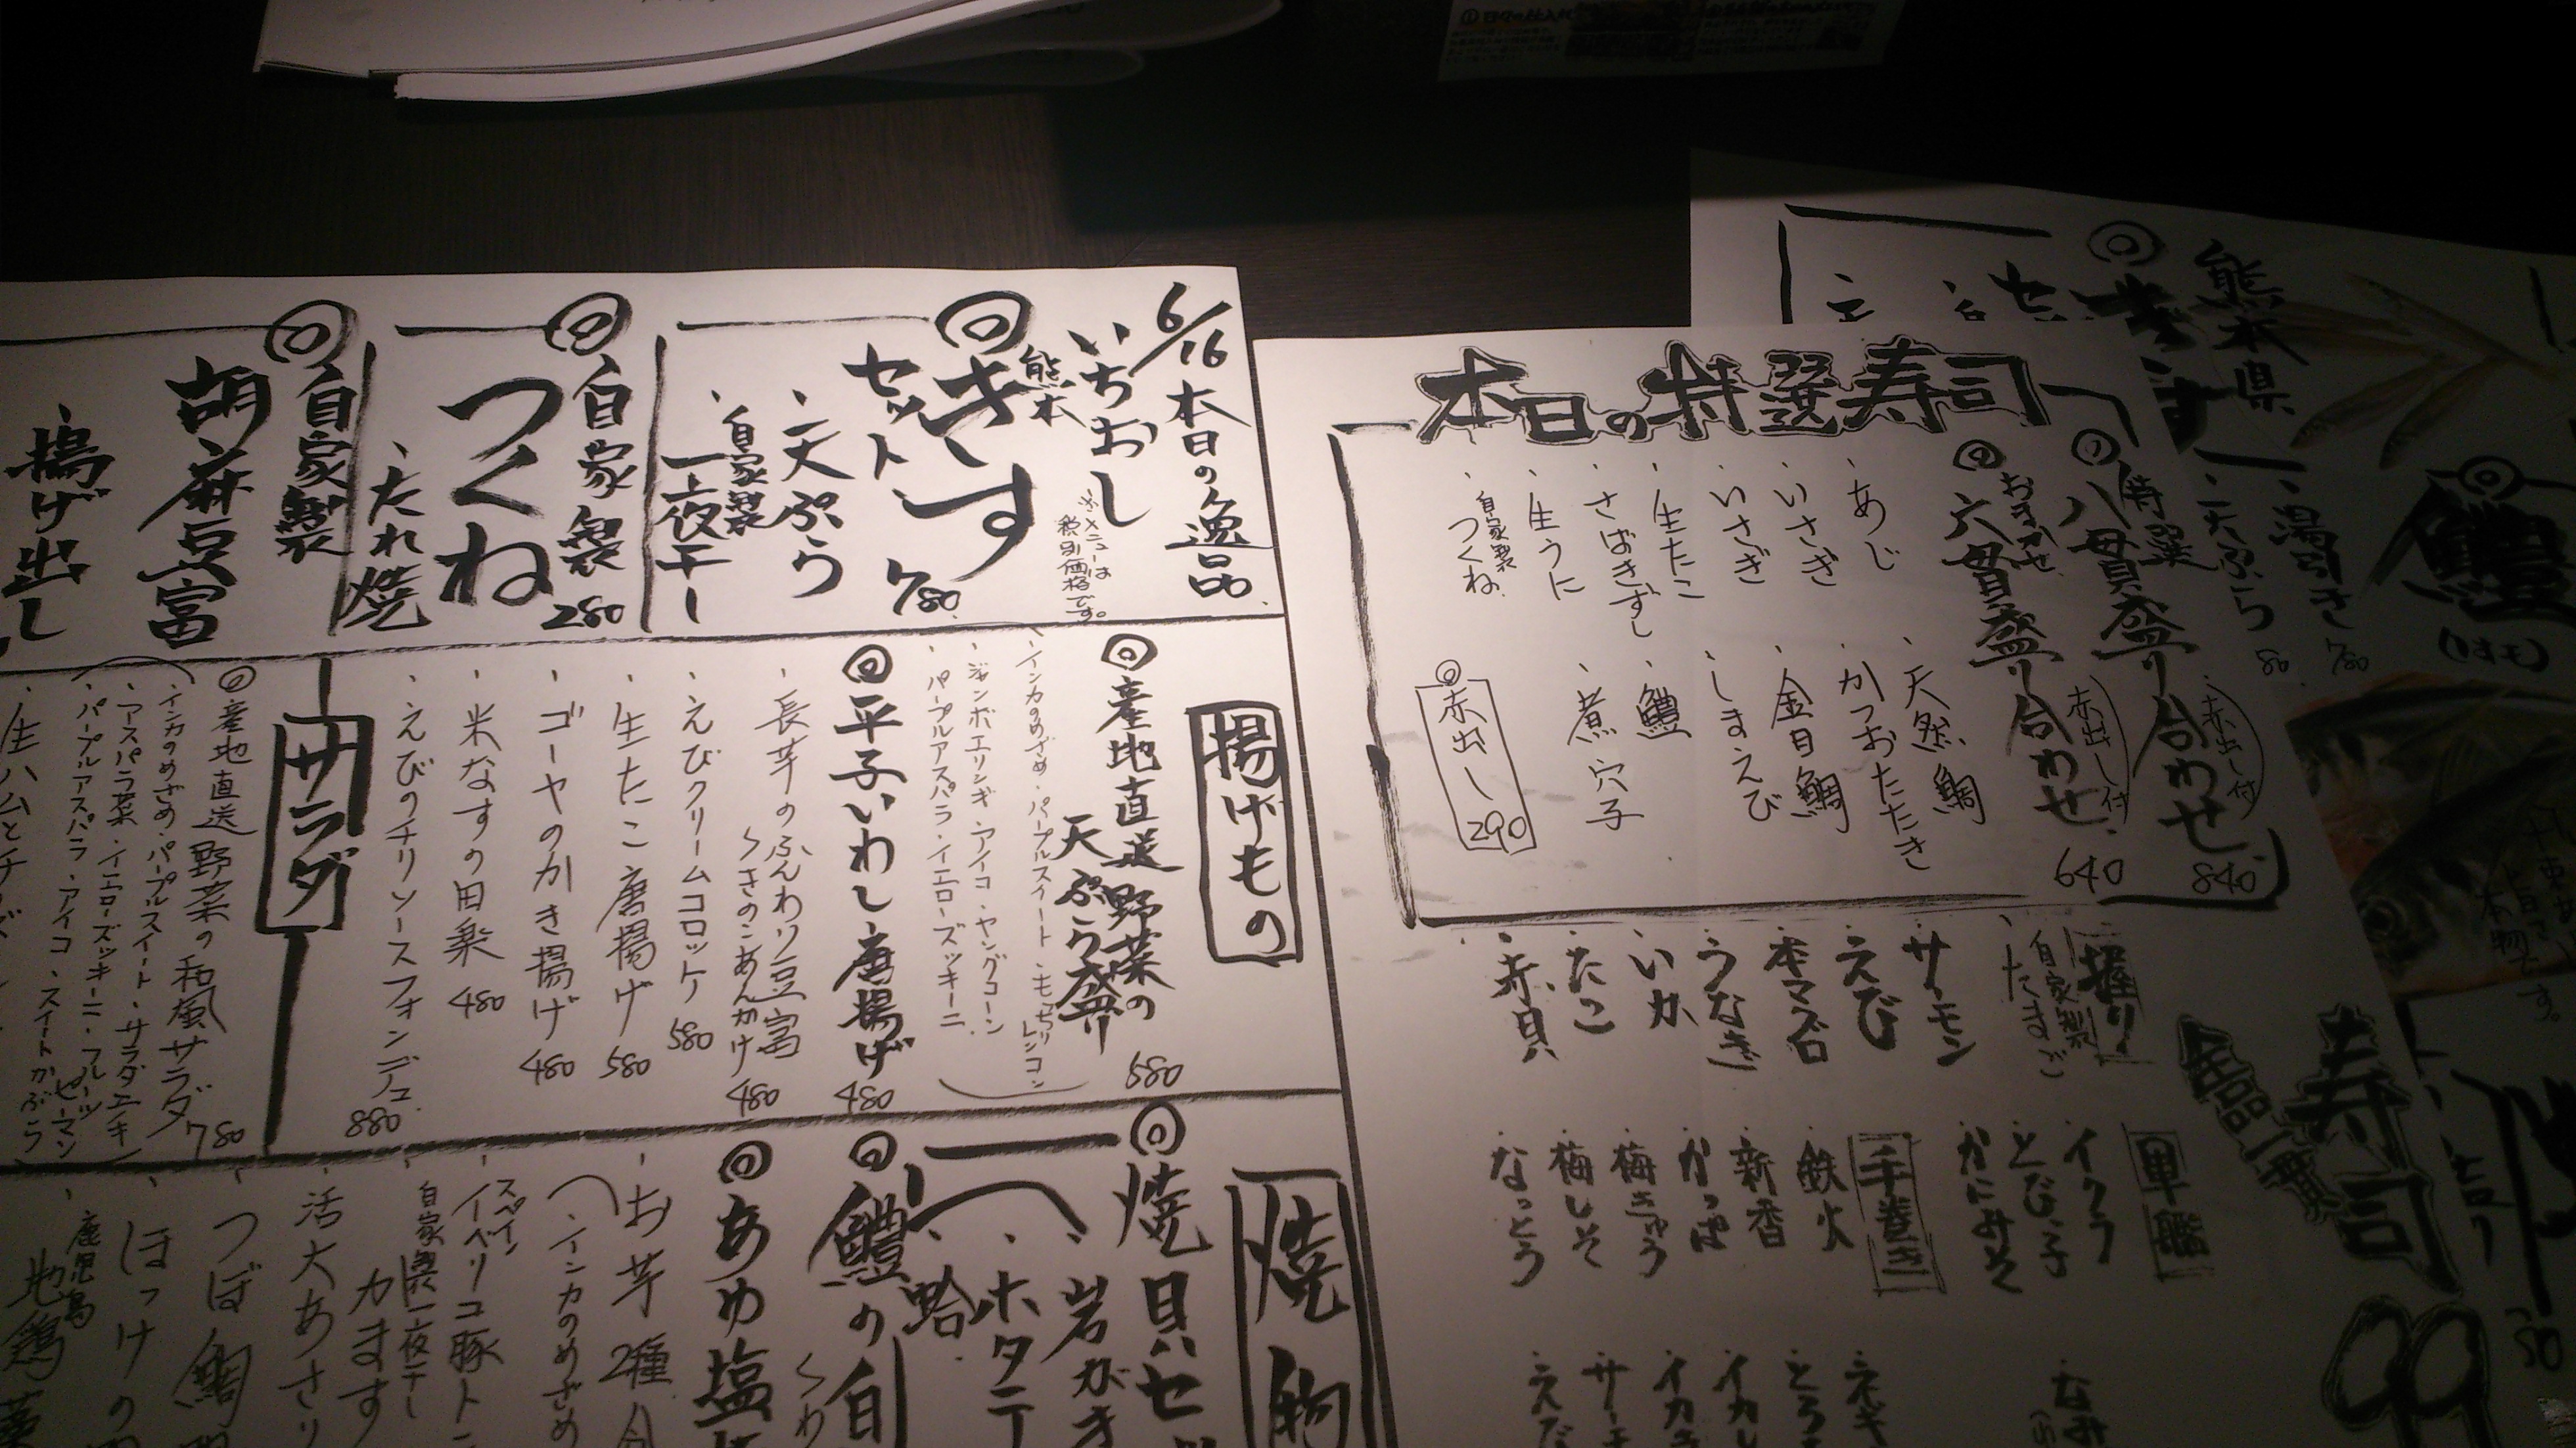 6/16 本日の逸品
いちおし
※メニューは
税別価格です。
◎熊本
きす
セット 780
・天ぷら
・自家製
一夜干し
◎自家製
つくね 280
・たれ焼
◎自家製
胡麻豆富
・揚げ出し
揚げもの
◎産地直送野菜の
天ぷら盛り 580
・インカのめざめ・パープルスイート・もっちりレンコン
・ジャンボエリンギ・アイコ・ヤングコーン
・パープルアスパラ・イエローズッキーニ
◎平子いわし唐揚げ 480
・長芋のふんわり豆富
〜きのこあんかけ 480
・えびクリームコロッケ 580
・生たこ唐揚げ 580
・ゴーヤのかき揚げ 480
・米なすの田楽 480
・えびのチリソースフォンデュ 880
サラダ
◎産地直送野菜の和風サラダ 780
・インカのめざめ・パープルスイート・サラダエキ
・アスパラ菜・イエローズッキーニ・フルーツピーマン
・パープルアスパラ・アイコ・スイートかぶら
・生ハムとチ
焼物
◎焼貝セ
・岩がき
・ホタテ
・蛤
◎鱧の白
◎あゆ塩
・お芋2種
・インカのめざめ
・スペイン
イベリコ豚ト
・自家製一夜干し
かます
・活大あさり
・つぼ鯛
・ほっけの
・鹿児島
地鶏
本日の特選寿司
◎特選
八貫盛り合わせ
(赤出し付) 840
◎おまかせ
六貫盛り合わせ
(赤出し付) 640
・あじ
・いさぎ
・いさぎ
・生たこ
・さばきずし
・生うに
・自家製
つくね
・天然鯛
・かつおたたき
・金目鯛
・しまえび
・鱧
・煮穴子
◎赤出し 290
寿司
一貫
99
握り
・自家製
たまご
・サーモン
・えび
・本マグロ
・うなぎ
・いか
・たこ
・赤貝
軍艦
・イクラ
・とび子
・かにみそ
手巻き
・鉄火
・新香
・かっぱ
・梅きゅう
・梅しそ
・なっとう
熊本県
◎きす
セ
鱧
(はも)
・湯引き 780
・天ぷら 80
本物です。